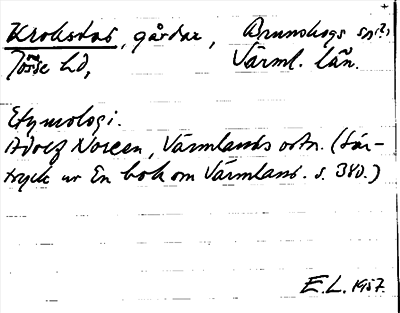 Krokstad, gårdar, Brunskogs sn?,
Jösse hd, Värml. län.
Etymologi.
Adolf Noreen, Värmlands ortn. (Sär-
tryck ur En bok om Värmland. s. 380.)
E.L. 1957.